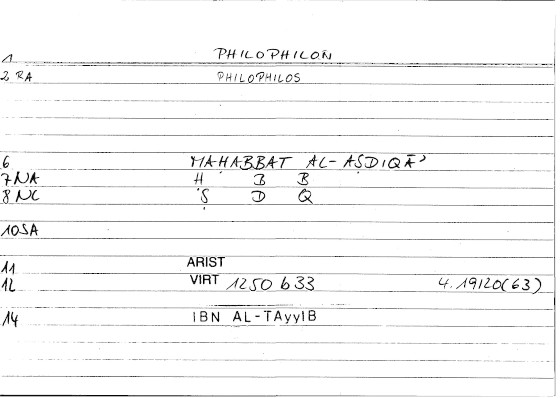 1 PHILOPHILON
2 RA PHILOPHILOS
6 MAḤABBAT AL-AṢDIQĀʾ
7 NA Ḥ B B
8 NC Ṣ D Q
10 SA
11 ARIST
12 VIRT 1250 b 33 4.19120(63)
14 IBN AL-TAyyIB